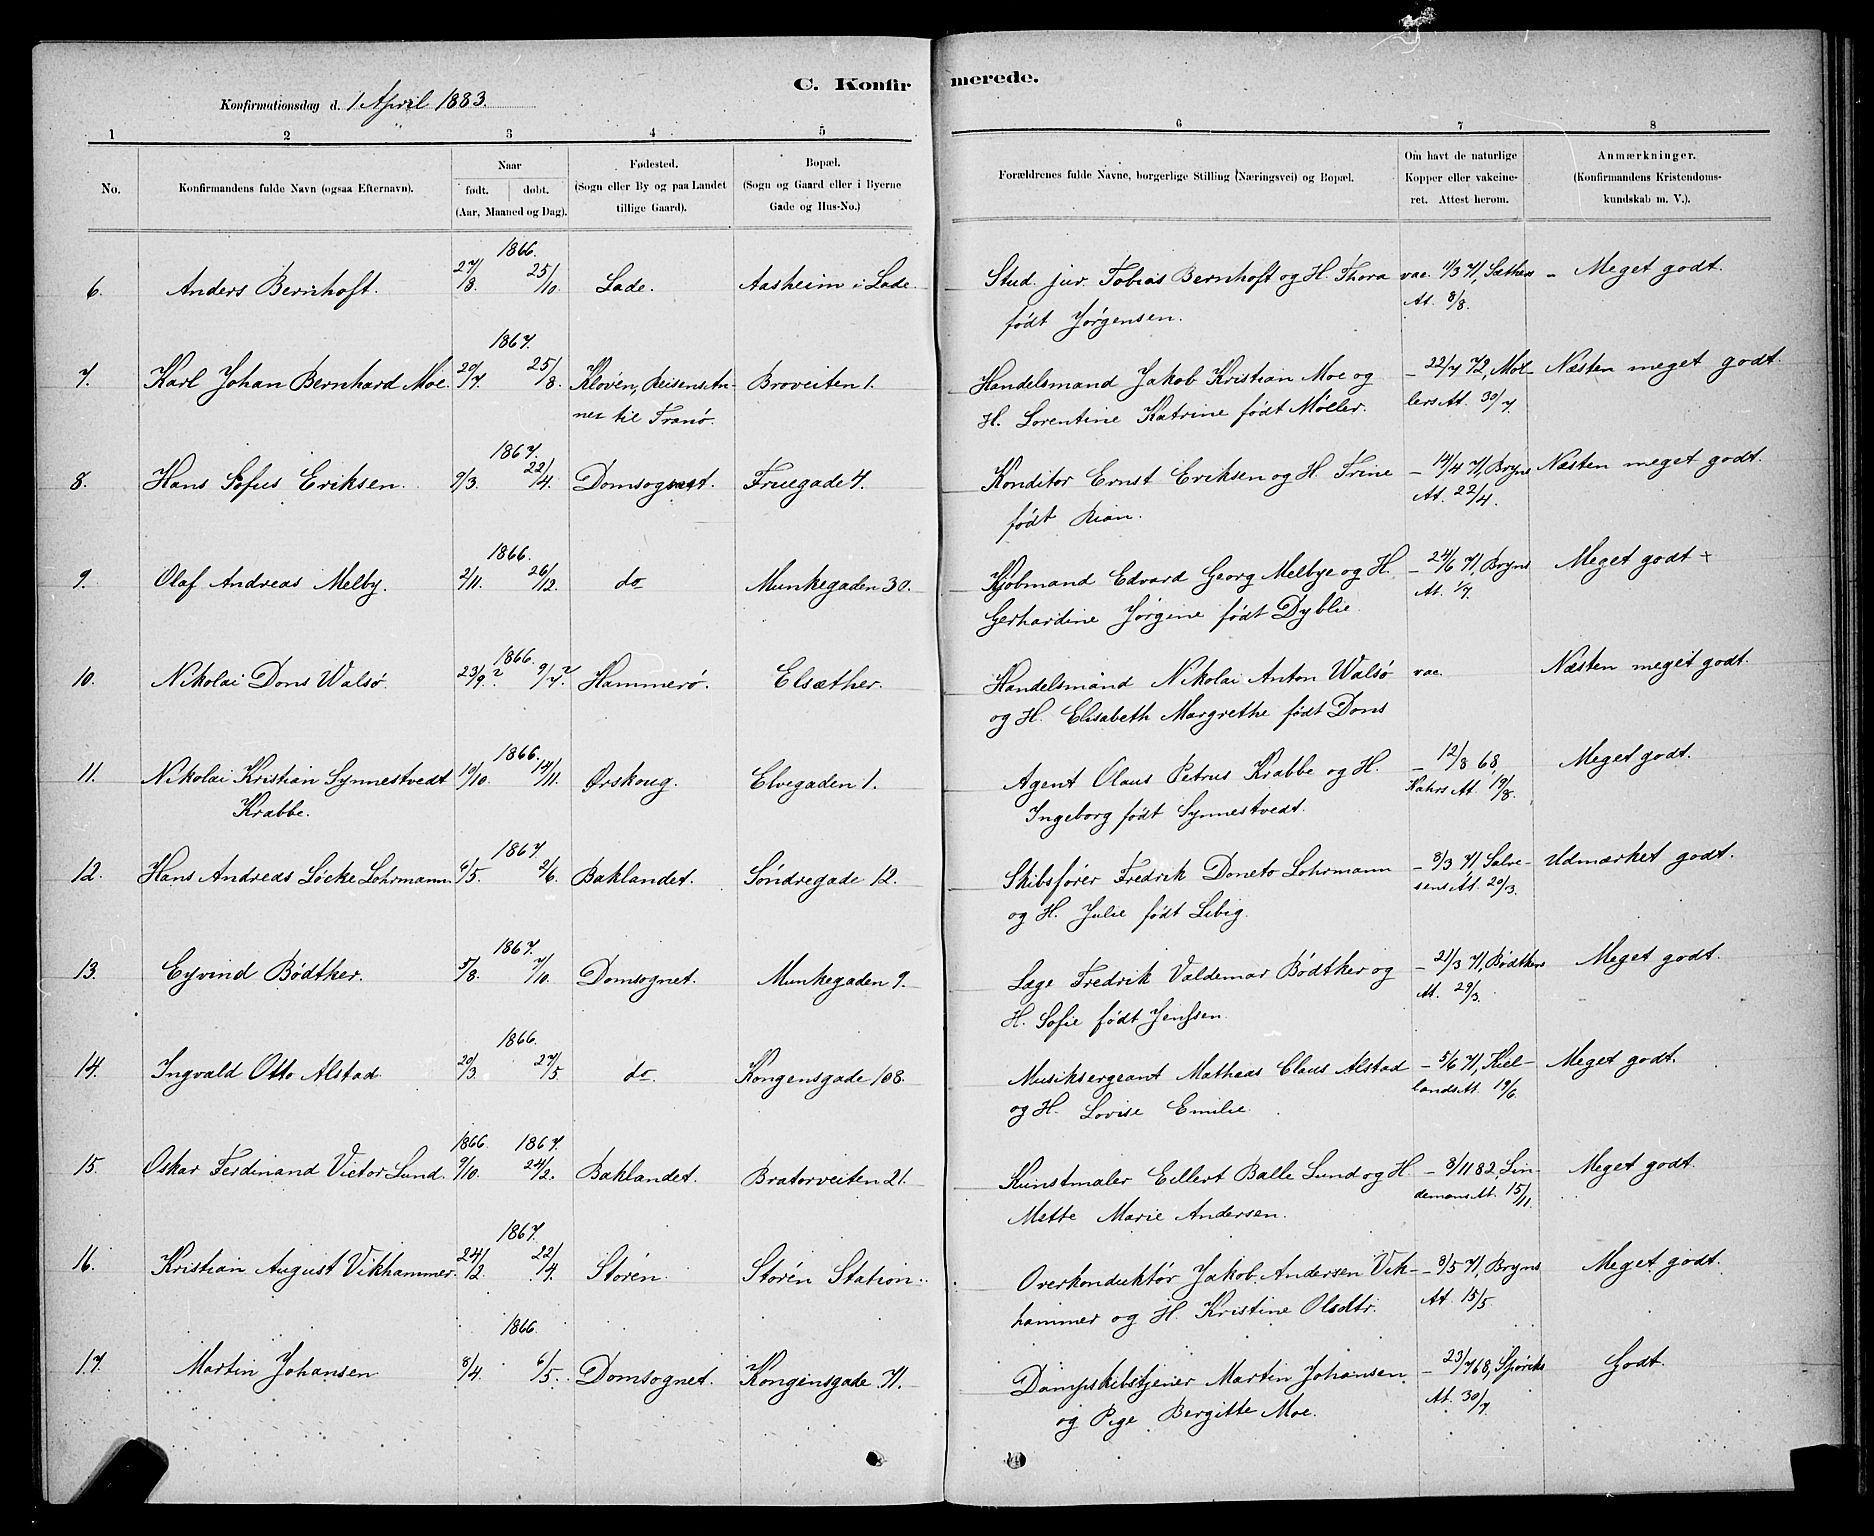 C. Konfirmerede.
Konfirmationsdag d. 1 April 1883.
1 2 3 4 5 6 7 8
No.
Konfirmandens fulde Navn (ogsaa Efternavn).
Naar
født. døbt.
(Aar, Maaned og Dag).
Fødested.
(Sogn eller By og paa Landet
tillige Gaard).
Bopæl.
(Sogn og Gaard eller i Byerne
Gade og Hus-No.)
Forældrenes fulde Navne, borgerlige Stilling (Næringsvei) og Bopæl.
Om havt de naturlige
Kopper eller vakcine-
ret. Attest herom.
Anmærkninger.
(Konfirmandens Kristendoms-
kundskab m. V.).
1866.
6. Anders Bernhoft. 27/8. 25/10. Lade. Aasheim i Lade. Stud. jur. Tobias Bernhoft og H. Thora vac. 11/3 71, - Meget godt.
født Jørgensen. At. 8/8.
1867.
7. Karl Johan Bernhard Moe. 20/7. 25/8. Kløven, Reisens An- Broveiten 1. Handelsmand Jakob Kristian Moe og - 22/7 72, Møl- Næsten meget godt.
nex til Tranø. H. Lorentine Katrine født Møller. lers At. 30/7.
1867.
8. Hans Sofus Eriksen. 9/3. 22/4. Domsognet. Fruegade 4. Konditor Ernst Eriksen og H. Trine - 14/4 71, Bryns Næsten meget godt.
født Rian. At. 22/4.
1866.
9. Olaf Andreas Melby. 2/11. 26/12. do Munkegaden 30. Kjøbmand Edvard Georg Melbye og H. - 24/6 71, Bryns Meget godt +
Gerhardine Jørgine født Dyblie. At. 1/7.
1866.
10. Nikolai Dons Walsø. 23/9? 9/7? Hammerø. Elsæther. Handelsmand Nikolai Anton Walsø vac. Næsten meget godt.
og H. Elisabeth Margrethe født Dons
1866.
11. Nikolai Kristian Synnestvedt 19/10. 14/11. Ørskoug. Elvegaden 1. Agent Olaus Petrus Krabbe og H. - 12/8 68, Meget godt.
Krabbe. Ingeborg født Synnestvedt. Kahrs At. 19/8.
1867
12. Hans Andreas Løcke Lohrmann. 6/5. 2/6. Baklandet. Søndregade 12. Skibsfører Fredrik Doneto Lohrmann - 8/3 71, Salve- Udmærket godt.
og H. Julie født Libig. sens At. 20/3.
1867.
13. Eyvind Bødtker. 5/8. 7/10. Domsognet. Munkegaden 9. Læge Fredrik Valdemar Bødtker og - 21/3 71, Bødtkers Meget godt.
H. Sofie født Jenssen. At. 29/3.
1866.
14. Ingvald Otto Alstad. 20/3. 27/5. do. Kongensgade 108. Musiksergeant Mathias Claus Alstad - 5/6 71, Kiel- Meget godt.
og H. Lovise Emilie. lands At. 19/6.
1866. 1867.
15. Oskar Ferdinand Victor Lund. 9/10. 24/2. Baklandet. Bratorveiten 21. Kunstmaler Eillert Balle Lund og H. - 8/11 82, Lin- Meget godt.
Mette Marie Andersen. demans At. 15/11.
1867.
16. Kristian August Vikhammer. 24/12. 22/4. Støren. Støren Station. Overkonduktør Jakob Andersen Vik- - 8/5 71, Bryns Meget godt.
hammer og H. Kristine Olsdtr. At. 15/5.
1866.
17. Martin Johansen 8/4. 6/5. Domsognet. Kongensgade 71. Dampskibstjener Martin Johansen - 23/7 68, Godt.
og Pige Bergitte Moe. At. 30/7.